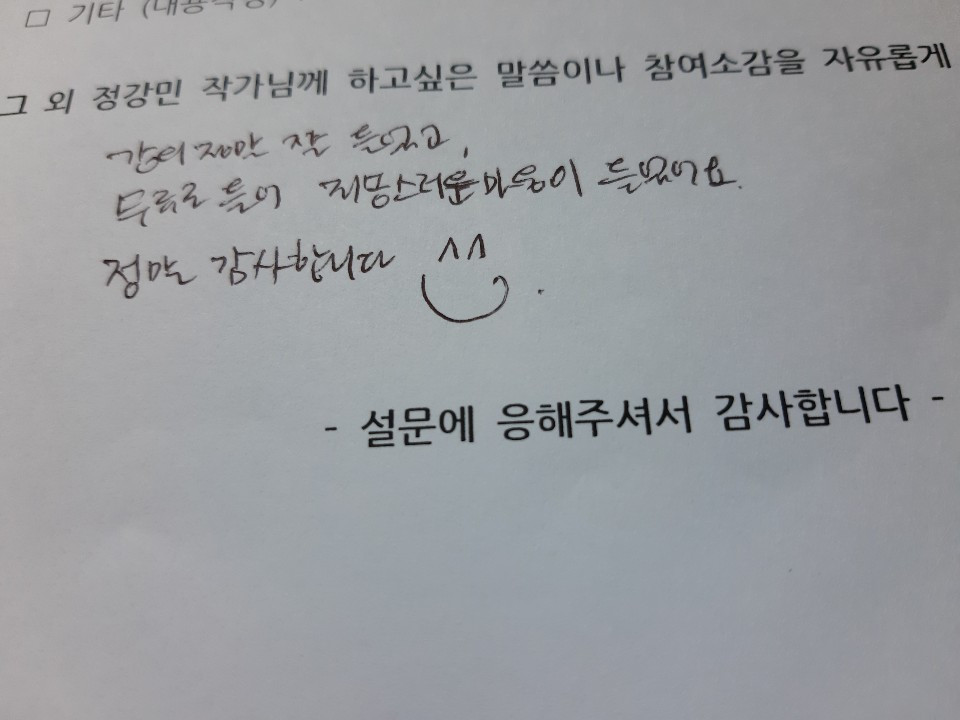 □ 기타 (내용작성)
그 외 정강민 작가님께 하고싶은 말씀이나 참여소감을 자유롭게
강의 잘 들었고,
무료로 들어 죄송스러운마음이 들었어요.
정말 감사합니다 ^^
- 설문에 응해주셔서 감사합니다 -